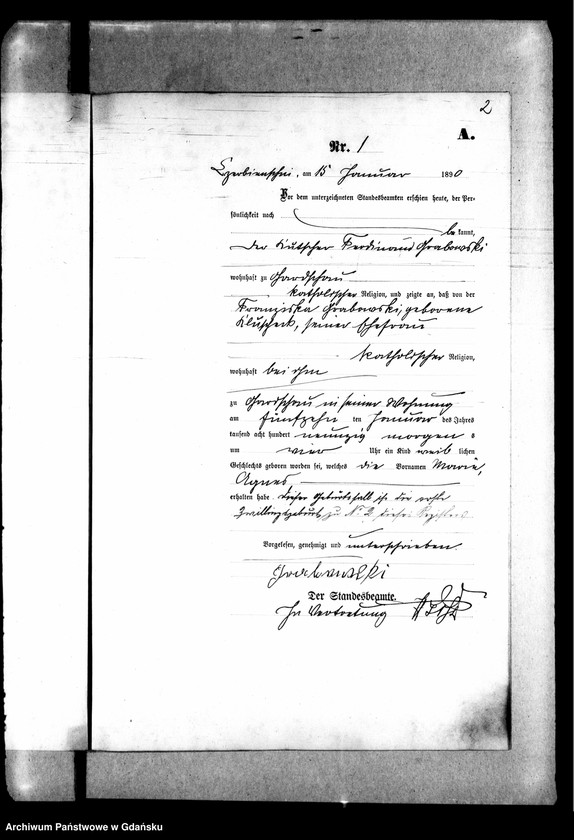 2
A.
Nr. 1
Czerbienschin, am 15 Januar 1890
Vor dem unterzeichneten Standesbeamten erschien heute, der Per-
sönlichkeit nach
bekannt,
der Kutscher Ferdinand Grabowski
wohnhaft zu Gardschau
katholischer Religion, und zeigte an, daß von der
Franziska Grabowski, geborene
seiner Ehefrau
katholischer Religion,
wohnhaft bei ihm
zu Gardschau in seiner Wohnung
am fünfzehn ten Januar des Jahres
tausend acht hundert neunzig morgens
um vier Uhr ein Kind weiblichen
Geschlechts geboren worden sei, welches die Vornamen Marie,
Agnes
erhalten habe. Dieser Geburtsfall ist die erste
Zwillingsgeburt zu No 2 dieses Registers.
Vorgelesen, genehmigt und unterschrieben.
Grabowski
Der Standesbeamte.
In Vertretung
Archiwum Państwowe w Gdańsku